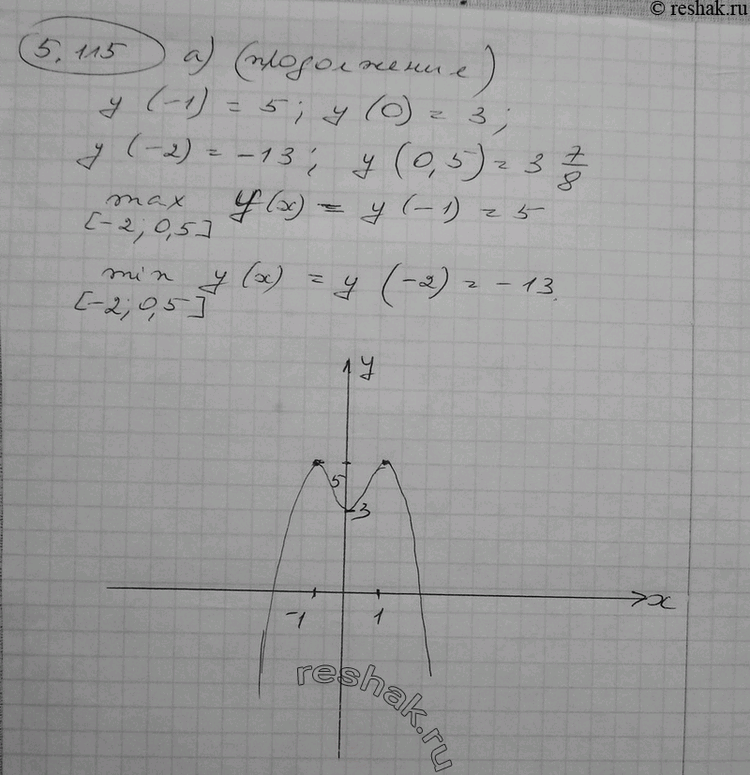 © reshak.ru
5.115 а) (продолжение)
y (-1) = 5; y (0) = 3;
y (-2) = -13; y (0,5) = 3 7/8
max y(x) = y (-1) = 5
[-2; 0,5]
min y (x) = y (-2) = -13.
[-2; 0,5]
y
5
3
-1 1 x
reshak.ru